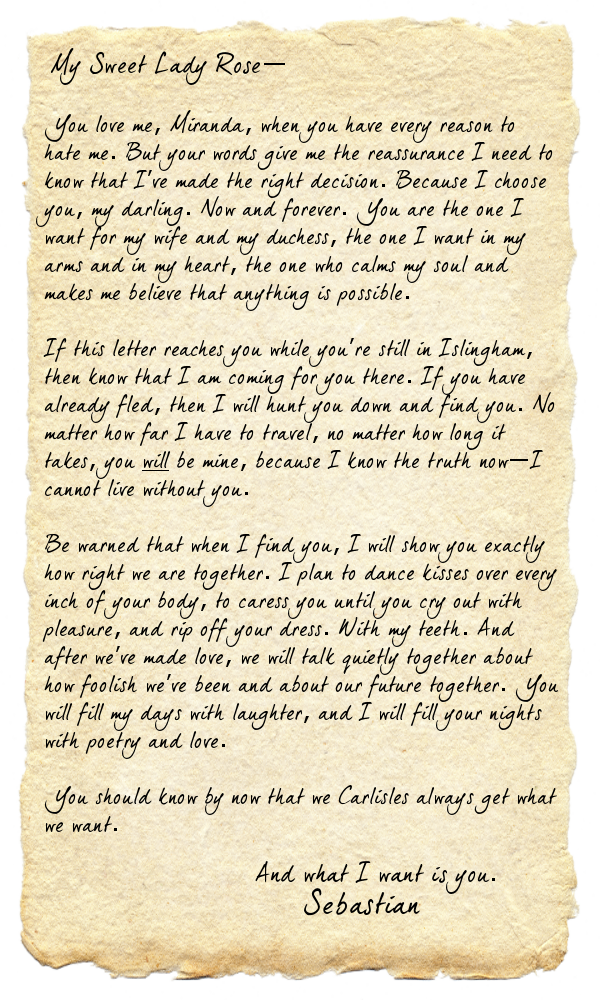 My Sweet Lady Rose—
You love me, Miranda, when you have every reason to
hate me. But your words give me the reassurance I need to
know that I've made the right decision. Because I choose
you, my darling. Now and forever. You are the one I
want for my wife and my duchess, the one I want in my
arms and in my heart, the one who calms my soul and
makes me believe that anything is possible.
If this letter reaches you while you're still in Islingham,
then know that I am coming for you there. If you have
already fled, then I will hunt you down and find you. No
matter how far I have to travel, no matter how long it
takes, you will be mine, because I know the truth now—I
cannot live without you.
Be warned that when I find you, I will show you exactly
how right we are together. I plan to dance kisses over every
inch of your body, to caress you until you cry out with
pleasure, and rip off your dress. With my teeth. And
after we've made love, we will talk quietly together about
how foolish we've been and about our future together. You
will fill my days with laughter, and I will fill your nights
with poetry and love.
You should know by now that we Carlisles always get what
we want.
And what I want is you.
Sebastian